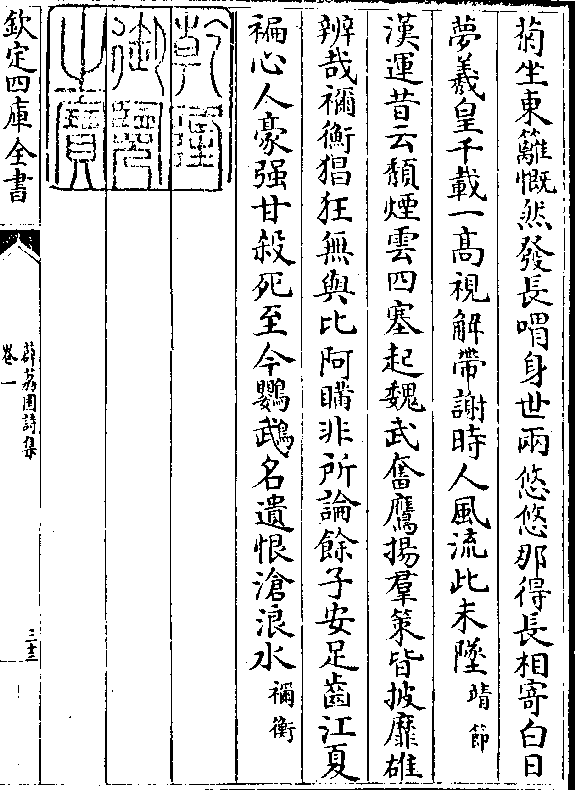 菊坐東籬慨然發長喟身世兩悠悠那得長相寄白日
夢羲皇千載一髙視解帶謝時人風流此未墜靖節
漢運昔云頹煙雲四塞起魏武奮鷹揚羣策皆披靡雄
辨哉禰衡猖狂無與比阿瞞非所論餘子安足齒江夏
褊心人豪强甘殺死至今鸚鵡名遺恨滄浪水禰衡
乾隆御覽之寶
欽定四庫全書
薜荔園詩集
卷一
三十三